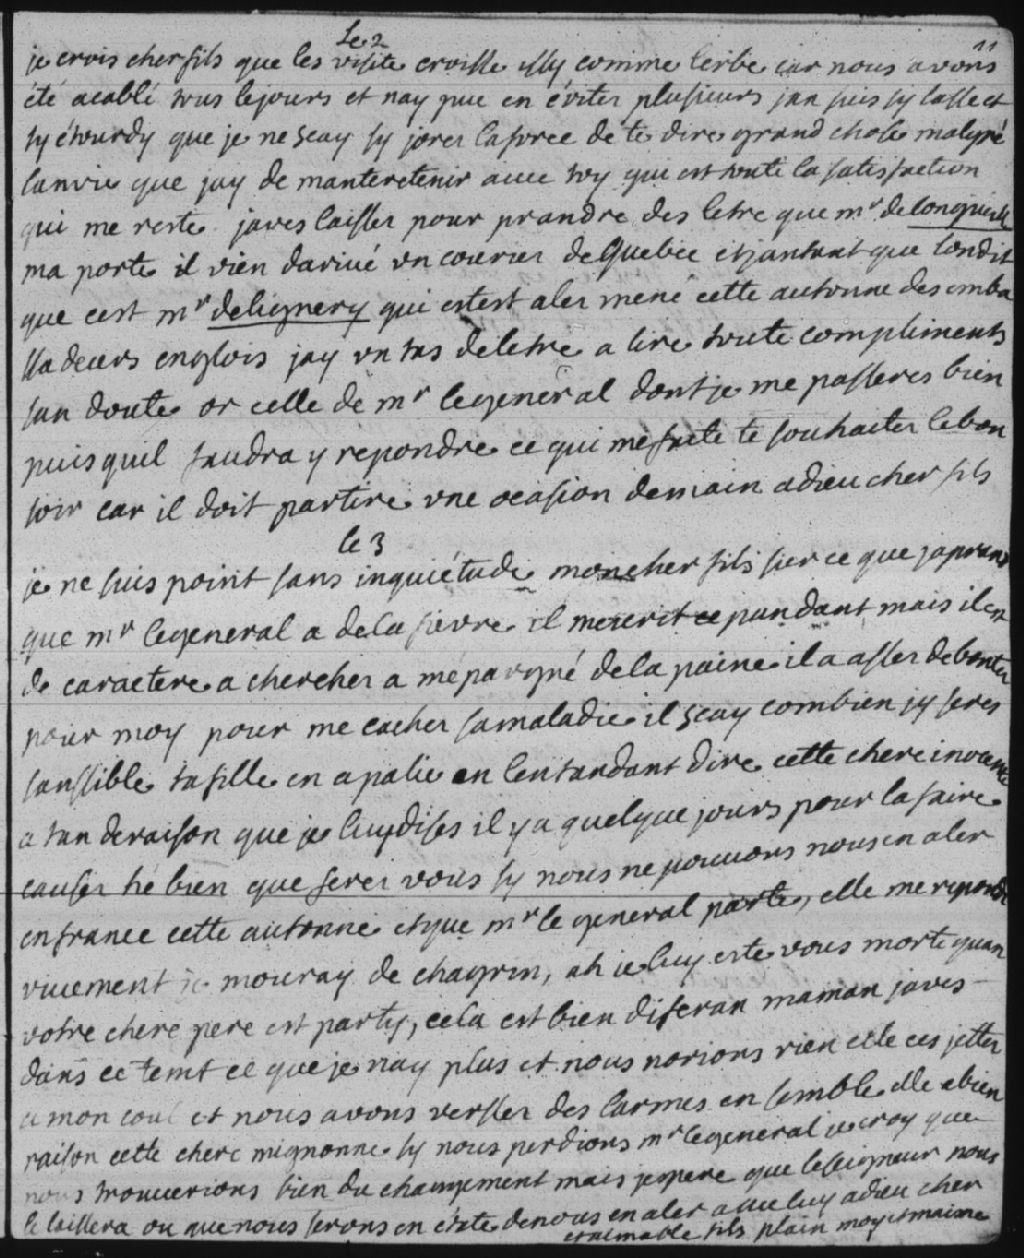 11
Le 2
je crois cher fils que les visite croisse issy comme lerbe car nous avons
été acablé tous lejours et nay pue en éviter plusieurs jan suis sy lasse et
sy étourdy que je ne scay sy jorei laforce de te dire grand chose malgré
lanvie que jay de manteretenir avec toy qui est toute la satisfaction
qui me reste javes laisser pour prandre des letre que mr de longueuil
ma porte il vien darivé un courier de Quebec et jantant que londit
que cest mr delignery qui estest aler mene cette autonne des emba
ssadeurs englois jay un tas deletre a lire toute compliments
san doute or celle de mr legeneral dont je me passeres bien
puisquil faudra y repondre ce qui mefaite te souhaiter lebon
soir car il doit partire une ocasion demain adieu cher fils
le 3
je ne suis point sans inquiétude moncher fils sier ce que japrans
que mr legeneral a dela fievre il mecrit ce pandant mais il est
de caractere a chercher a mépargné dela paine il a asser debonter
pour moy pour me cacher samaladie il scay combien jy seres
sanssible tafille en apalie en lentandant dire cette chere inocente
a tan deraison que je luy dises il y a quelque jours pour lafaire
causer hé bien que ferer vous sy nous ne pouvons nousen aler
enfrance cette autonne etque mr le general parte, elle me repondit
vivement je mouray de chagrin, ah je luy este vous morte quan
votre chere pere est party, cela est bien diferan maman javes
dans ce temt ce que je nay plus et nous norions rien elle ces jetter
a mon coul et nous avons versser des larmes en semble elle abien
raison cette chere mignonne sy nous perdions mr legeneral je croy que
nous trouverions bien du changement mais jespere que leseigneur nous
le laissera ou que nous serons en état denous en aler avec luy adieu cher
et aimable fils plain moy et maime